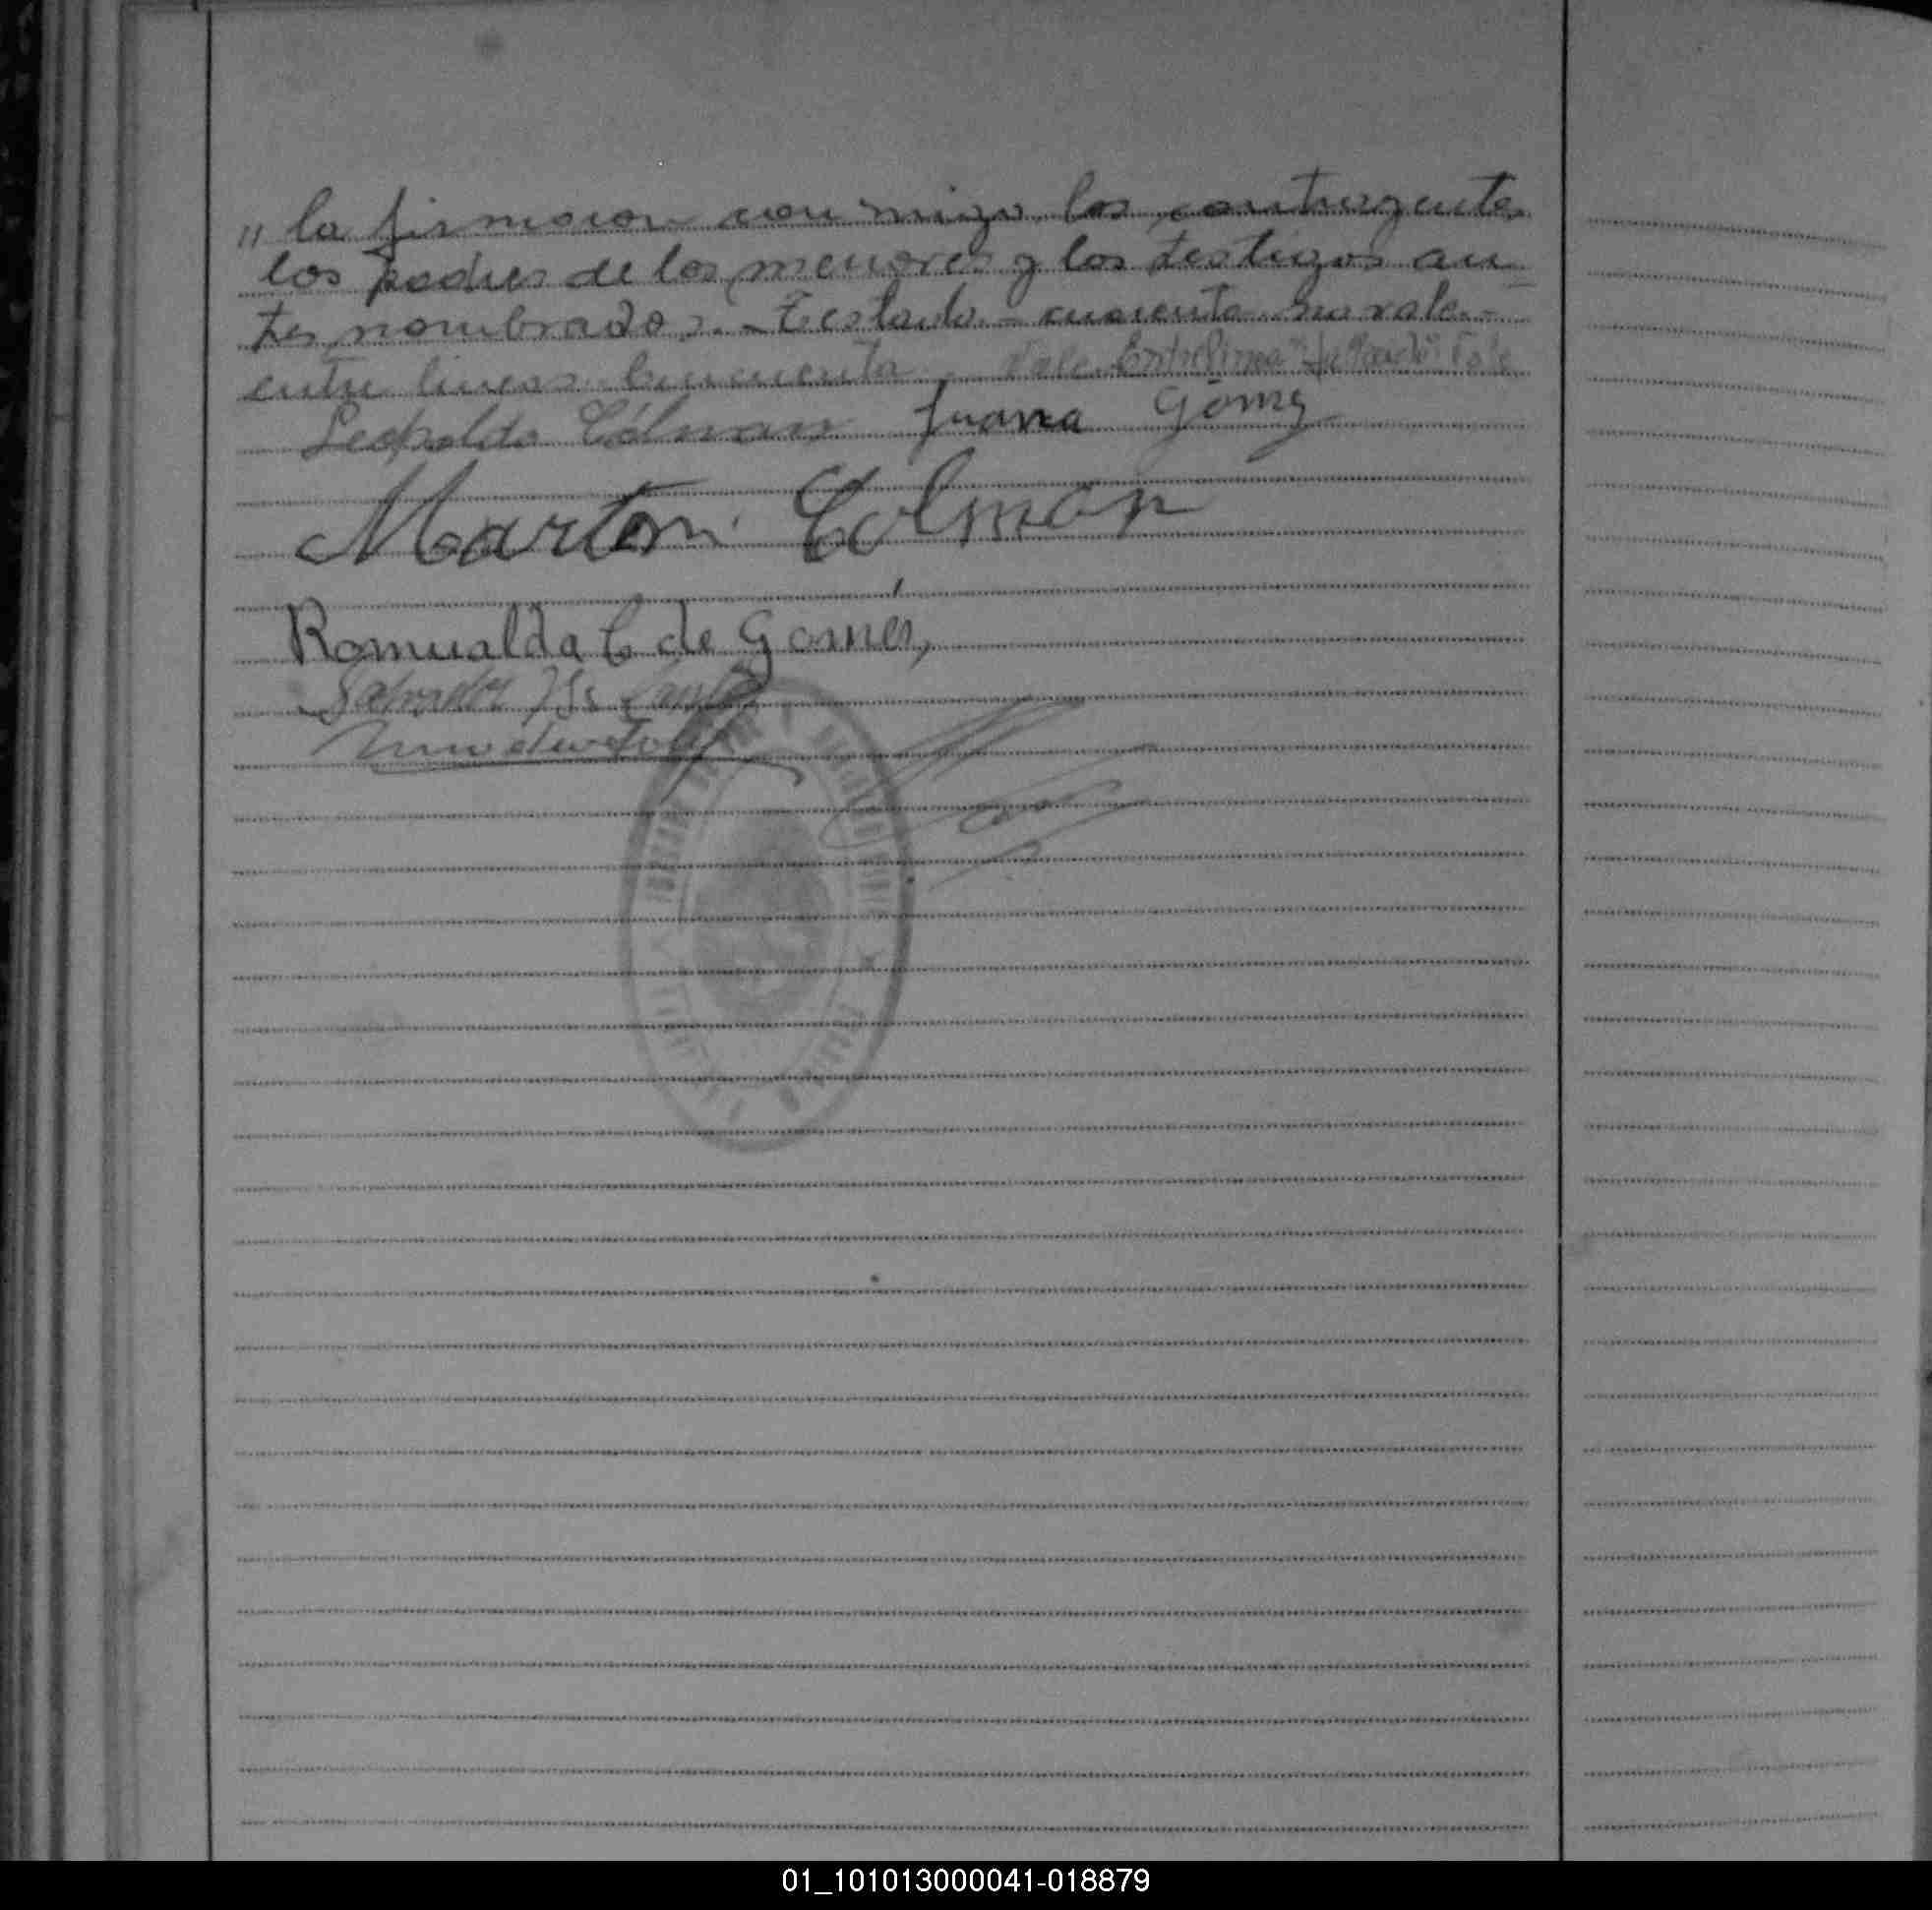 " la firmaron con migo los contrayentes
los padres de los menores y los testigos an
tes nombrados.- Testado - cuarenta no vale.-
entre lineas cincuenta. Vale. Entrelinea
Leopoldo Cólman Juana Gómez
Martin Colman
Romualda C de Gomes,
01_101013000041-018879